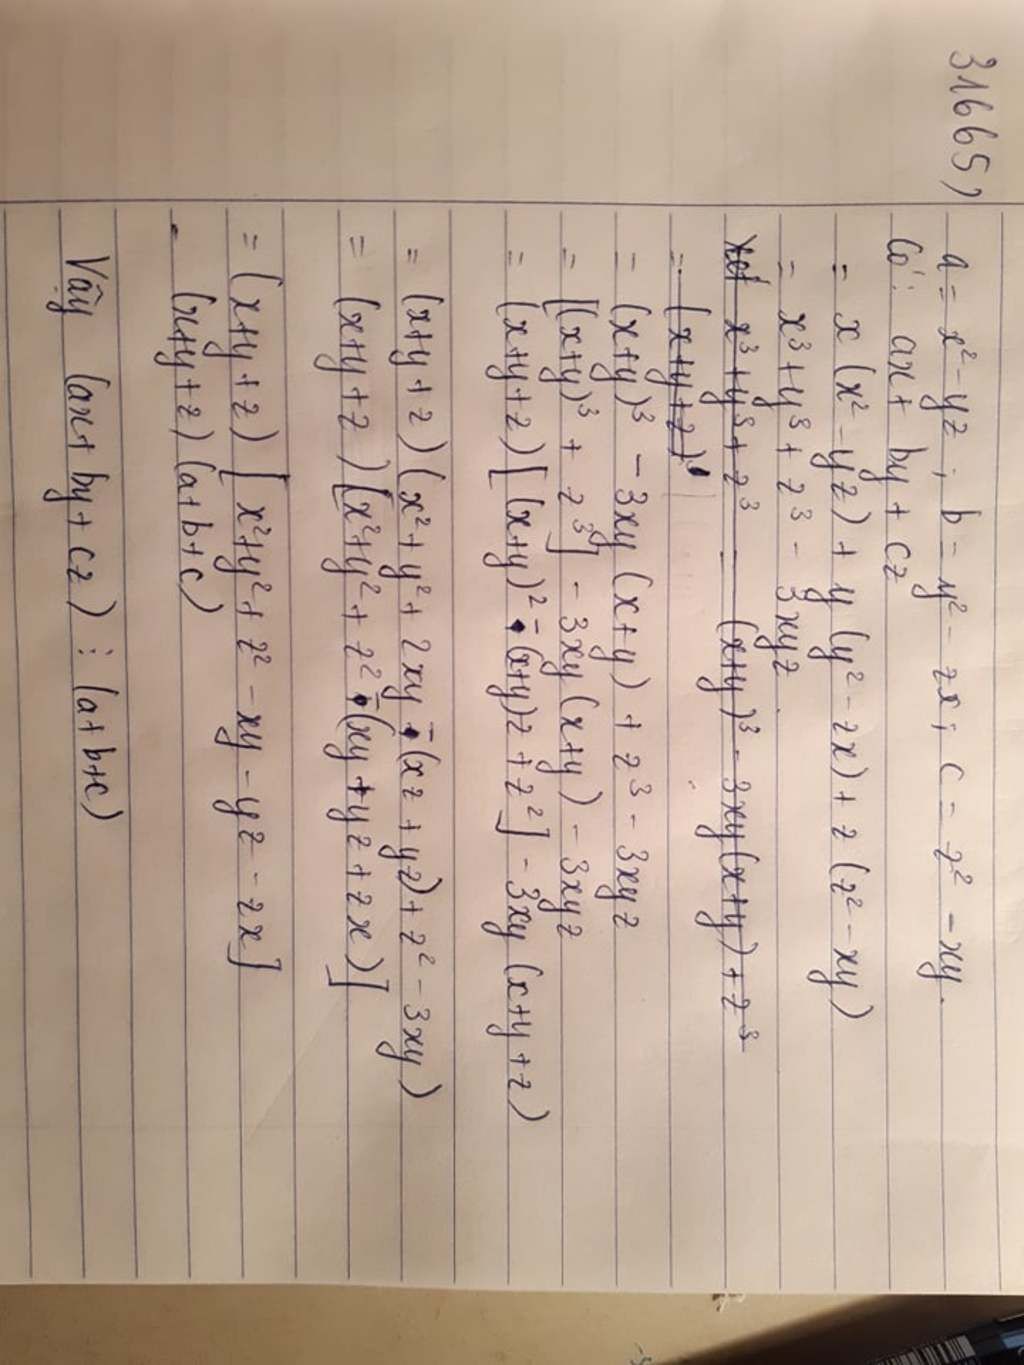 31665) a = x² - yz ; b = y² - zx ; c = z² - xy.
Có: ax + by + cz
= x (x² - yz) + y (y² - zx) + z (z² - xy)
= x³ + y³ + z³ - 3xyz
xét x³ + y³ + z³ (x+y)³ - 3xy(x+y) + z³
= (x+y+z)³
= (x+y)³ - 3xy (x+y) + z³ - 3xyz
= [(x+y)³ + z³] - 3xy (x+y) - 3xyz
= (x+y+z) [(x+y)² - (x+y)z + z²] - 3xy (x+y+z)
= (x+y+z) (x² + y² + 2xy - (xz + yz) + z² - 3xy)
= (x+y+z) [x² + y² + z² - (xy + yz + zx)]
= (x+y+z) [x² + y² + z² - xy - yz - zx]
= (x+y+z) (a+b+c)
Vậy (ax + by + cz) ⋮ (a+b+c)